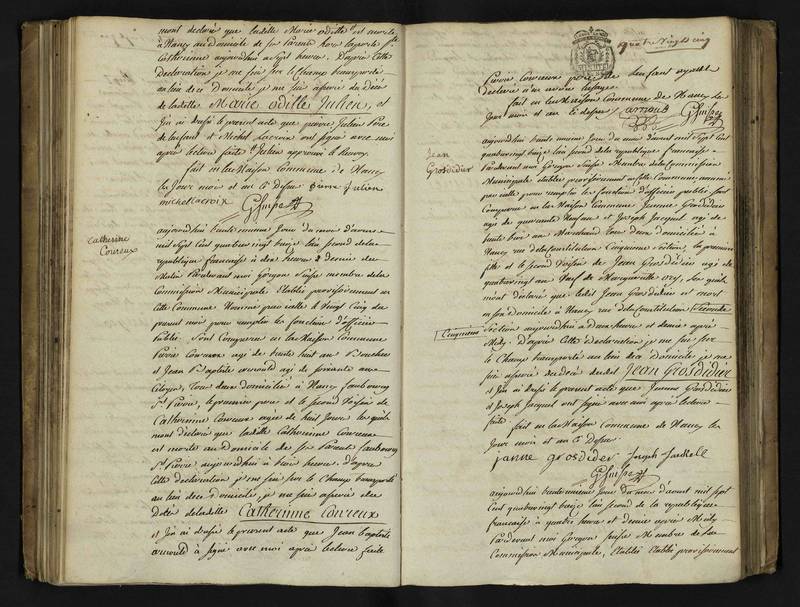 mont declaré que ladelle Marie odille est morte
à Nancy au domicile de ses Parents
Catherinne aujourdhui à Sept heures, D'après Cette
declaration je me suis sur le Champ transporté
au lieu de ce Domicile, je me suis assuré du Decé
de ladelle Marie odille Julien, et
j'en ai dressé le present acte que pierre Julien Pere
de lenfant et Michel Lacroix ont signé avec moi
après lecture faite
fait en la Maison Commune de Nancy
les Jour mois et an Ci dessus pierre Julien
michel lacroix
Catherine
Coureux
aujourdhui trente unieme Jour du mois d'aoust
mil Sept Cent quatre vingt treize l'an second de la
republique francaise à dix heures
Matin Pardevant moi Grégoire Suisse membre de la
Commission Municipale Etablie provisoirement en
Cette Commune Nommé par icelle le Vingt Cinq du
present mois pour remplir les fonctions d'officier
Public, Sont Comparus en la Maison Commune
Pierre Coureux agé de trente huit ans
et Jean Baptiste arnould agé de soixante ans
Citoyens, tous deux Domiciliés à Nancy faubourg
St Pierre, le premier pere et le second Voisin de
Catherinne Coureux agée de huit Jours lesquels
mont declaré que ladelle Catherinne Coureux
est morte au domicile de ses Parents faubourg
St Pierre aujourdhui à huit heures. D'apres
Cette declaration je me suis sur le Champ transporté
au lieu de ce Domicile, je me suis assuré du
decé de ladelle Catherinne Coureux
et j'en ai dressé le present acte que Jean Baptiste
arnould à signé avec moi après lecture faite
quatre vingt cinq
Pierre Coureux pere de lenfant ayant
declaré n'en avoir l'usage
fait en la Maison Commune de Nancy les
Jour mois et an Ci dessus arnould
Jean
Grosdidier
aujourdhui trente unieme Jour du mois d'aoust mil Sept Cent
quatre vingt treize l'an second de la republique francaise
Pardevant moi Grégoire Suisse Membre de la Commission
Municipale établie provisoirement en Cette Commune nommé
par icelle pour remplir les fonctions d'officier public, sont
Comparus en la Maison Commune Jeanne Grosdidier
agée de quarante Neuf ans et Joseph Jacquel agé de
trente ans Marchand tous deux domiciliés à
Nancy rue de la Constitution Cinquieme Section, la premiere
fille et le second Voisin de Jean Grosdidier agé de
quatre vingt ans Veuf de
mont declaré que ledit Jean Grosdidier est mort
en son domicile à Nancy rue de la Constitution
Cinquieme
Section aujourdhui à deux heures et demie après
Midy. D'après Cette declaration je me suis sur
le Champ transporté au lieu de ce domicile je me
suis assuré du decé dudit Jean Grosdidier
et j'en ai dressé le present acte que Jeanne Grosdidier
et Joseph Jacquel ont signé avec moi après lecture
faite
fait en la Maison Commune de Nancy les
Jour mois et an Ci dessus
janne grosdidier Joseph Jackell
aujourdhui trente unieme Jour du mois d'aoust mil Sept
Cent quatre vingt treize l'an second de la republique
francaise à quatre heures et demie après Midy
Pardevant moi Grégoire Suisse Membre de la
Commission Municipale, Etablie Etablie provisoirement